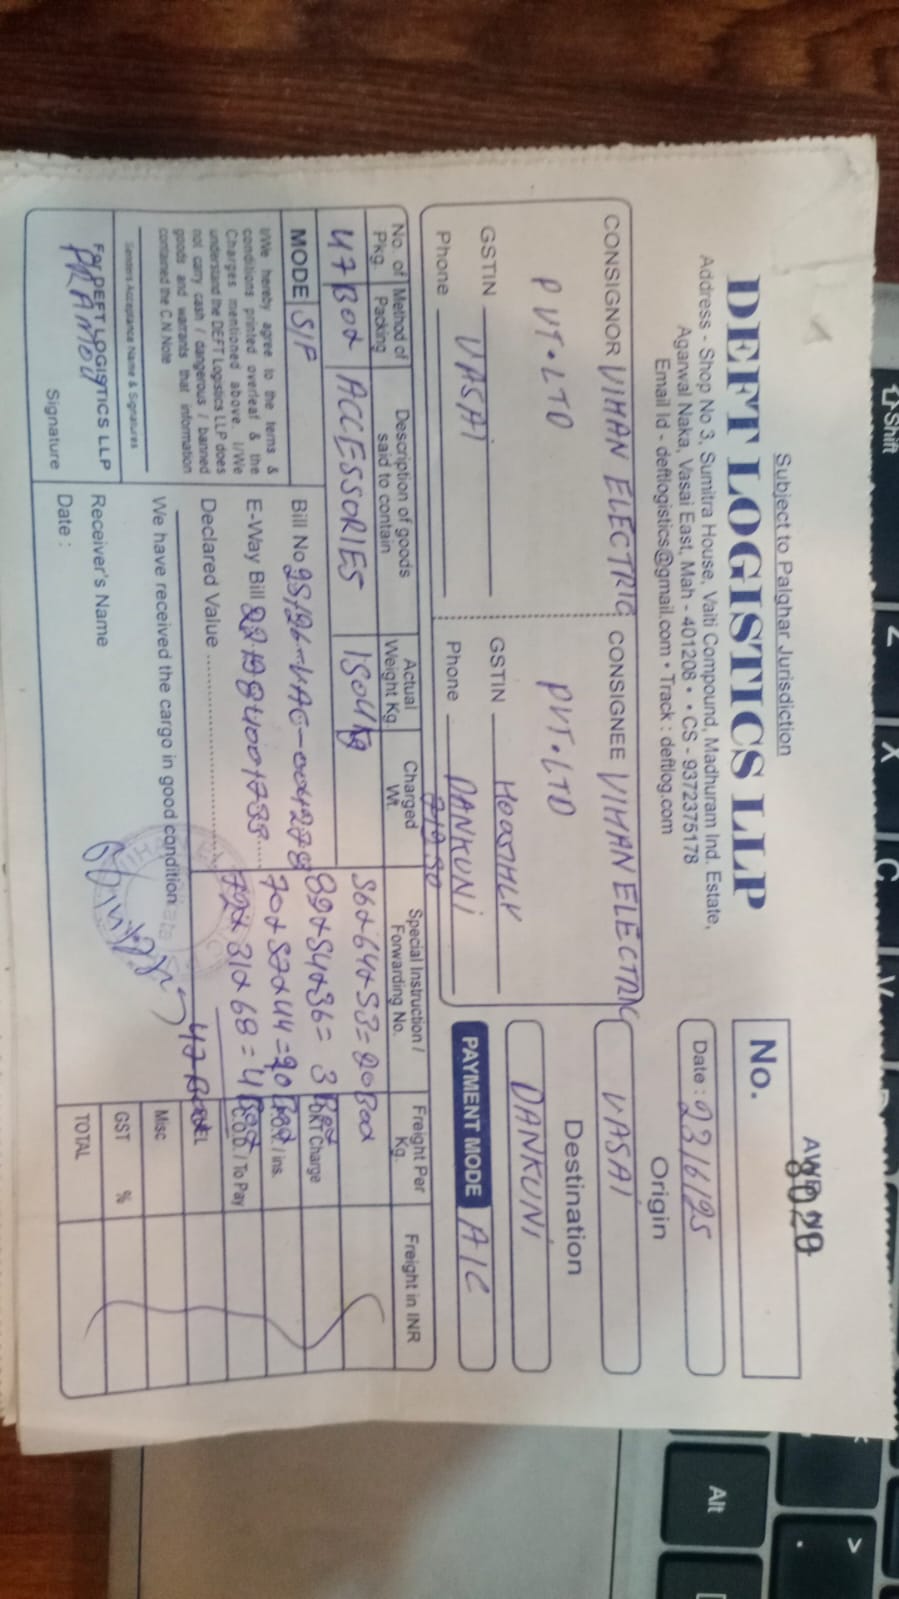 Subject to Palghar Jurisdiction
DEFT LOGISTICS LLP
Address - Shop No 3, Sumitra House, Valti Compound, Madhuram Ind. Estate,
Agarwal Naka, Vasai East, Mah - 401208 • • CS - 9372375178
Email Id - deftlogistics@gmail.com • Track : deftlog.com
AWB NO
8020
No.
Date : 23/6/25
CONSIGNOR VIHAN ELECTRIC
PVT. LTD
GSTIN
VASAI
Phone
CONSIGNEE VIHAN ELECTRIC
PVT. LTD
GSTIN
Phone DANKUNI
Origin
VASAI
Destination
DANKUNI
PAYMENT MODE A/C
No. of Pkg. Method of Packing Description of goods said to contain Actual Weight Kg. Charged Wt. Special Instruction / Forwarding No. Freight Per Kg. Freight in INR
47 Box ACCESSORIES 1504 kg
56x64x53=20 Box
89x54x36= 3 Box
70x57x44=20 Box
72x31x68=4 Box
47 Box
MODE S/F
I/We hereby agree to the terms &
conditions printed overleaf & the
Charges mentioned above. I/We
understand the DEFT Logistics LLP does
not carry cash / dangerous / banned
goods and warrants that information
contained the C.N.Note
Senders Acceptance Name & Signatures
For DEFT LOGISTICS LLP
PRAMOD
Signature
Bill No 25/26-VAC-004278
E-Way Bill
Declared Value
We have received the cargo in good condition
Receiver's Name
Date :
Charge
/ Ins.
C.O.D. / To Pay
Misc
GST %
TOTAL
Shift
Z
X
C
V
Alt
>
.